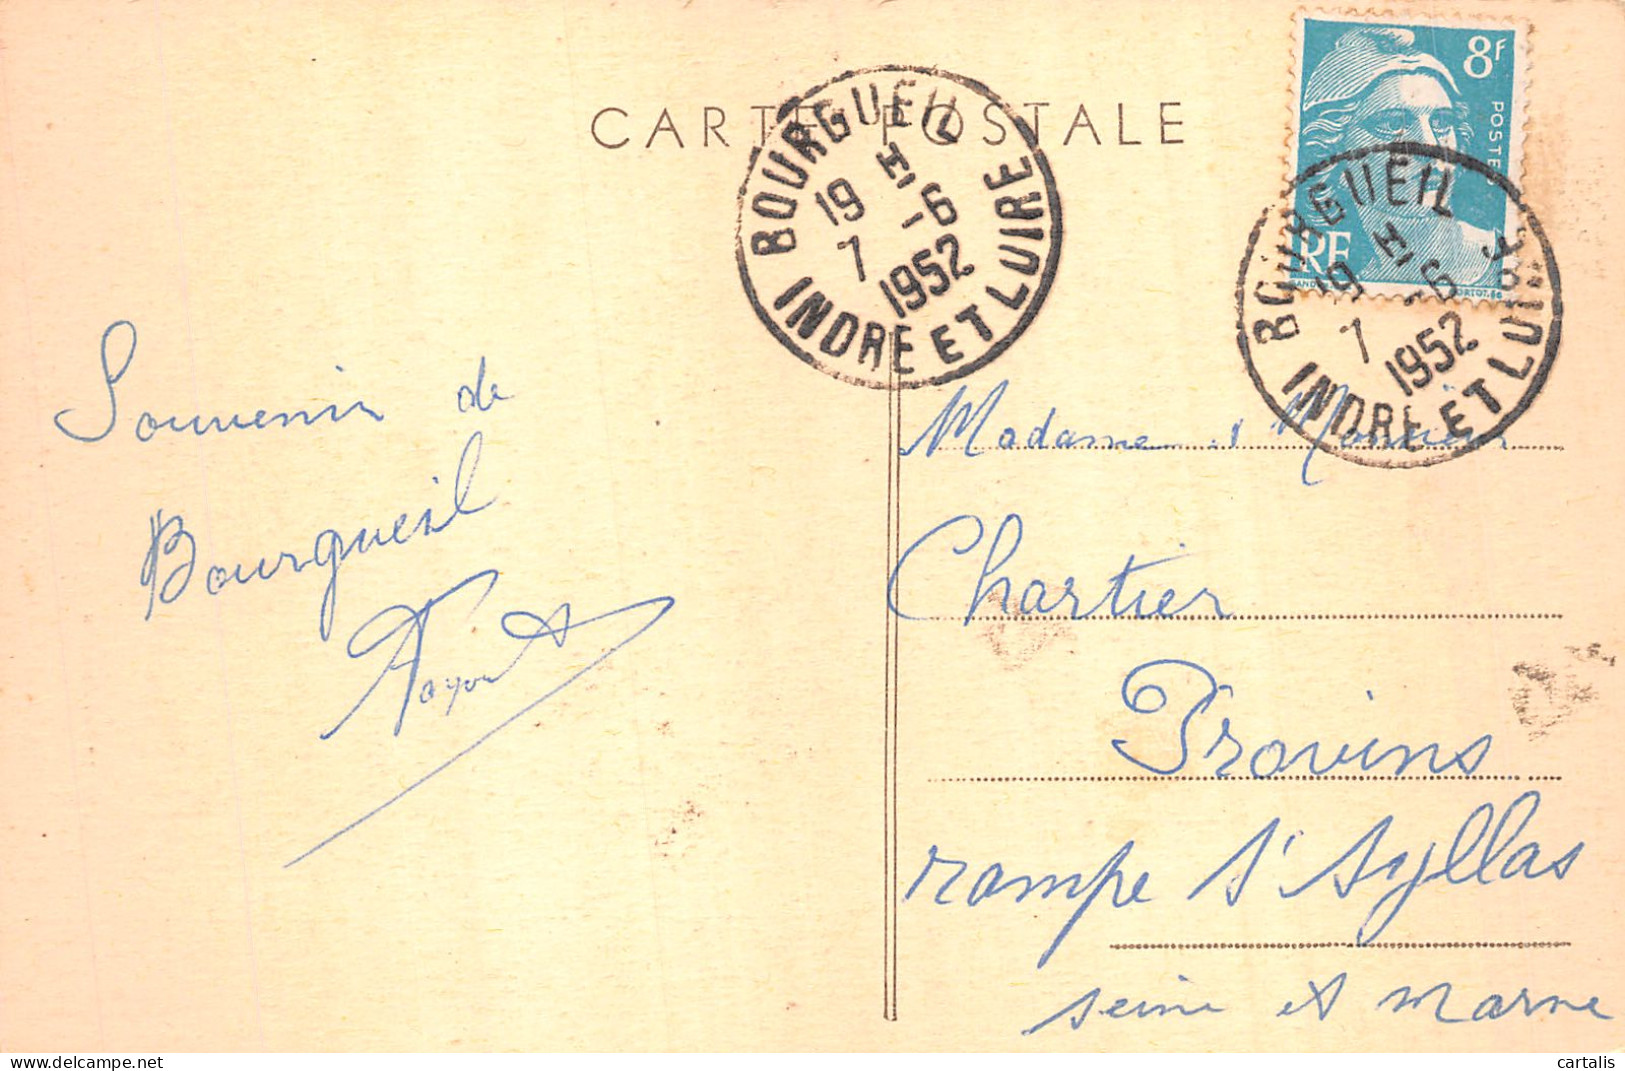 CARTE POSTALE
8F
POSTES
RF
BOURGUEIL
19 H
7 -6
1952
INDRE ET LUIRE
BOURGUEIL
19 H
7 -6
1952
INDRE ET LUIRE
Souvenir de
Bourgueil
Madame et Monsieur
Chartier
Provins
rampe St Syllas
seine et Marne
cartalis